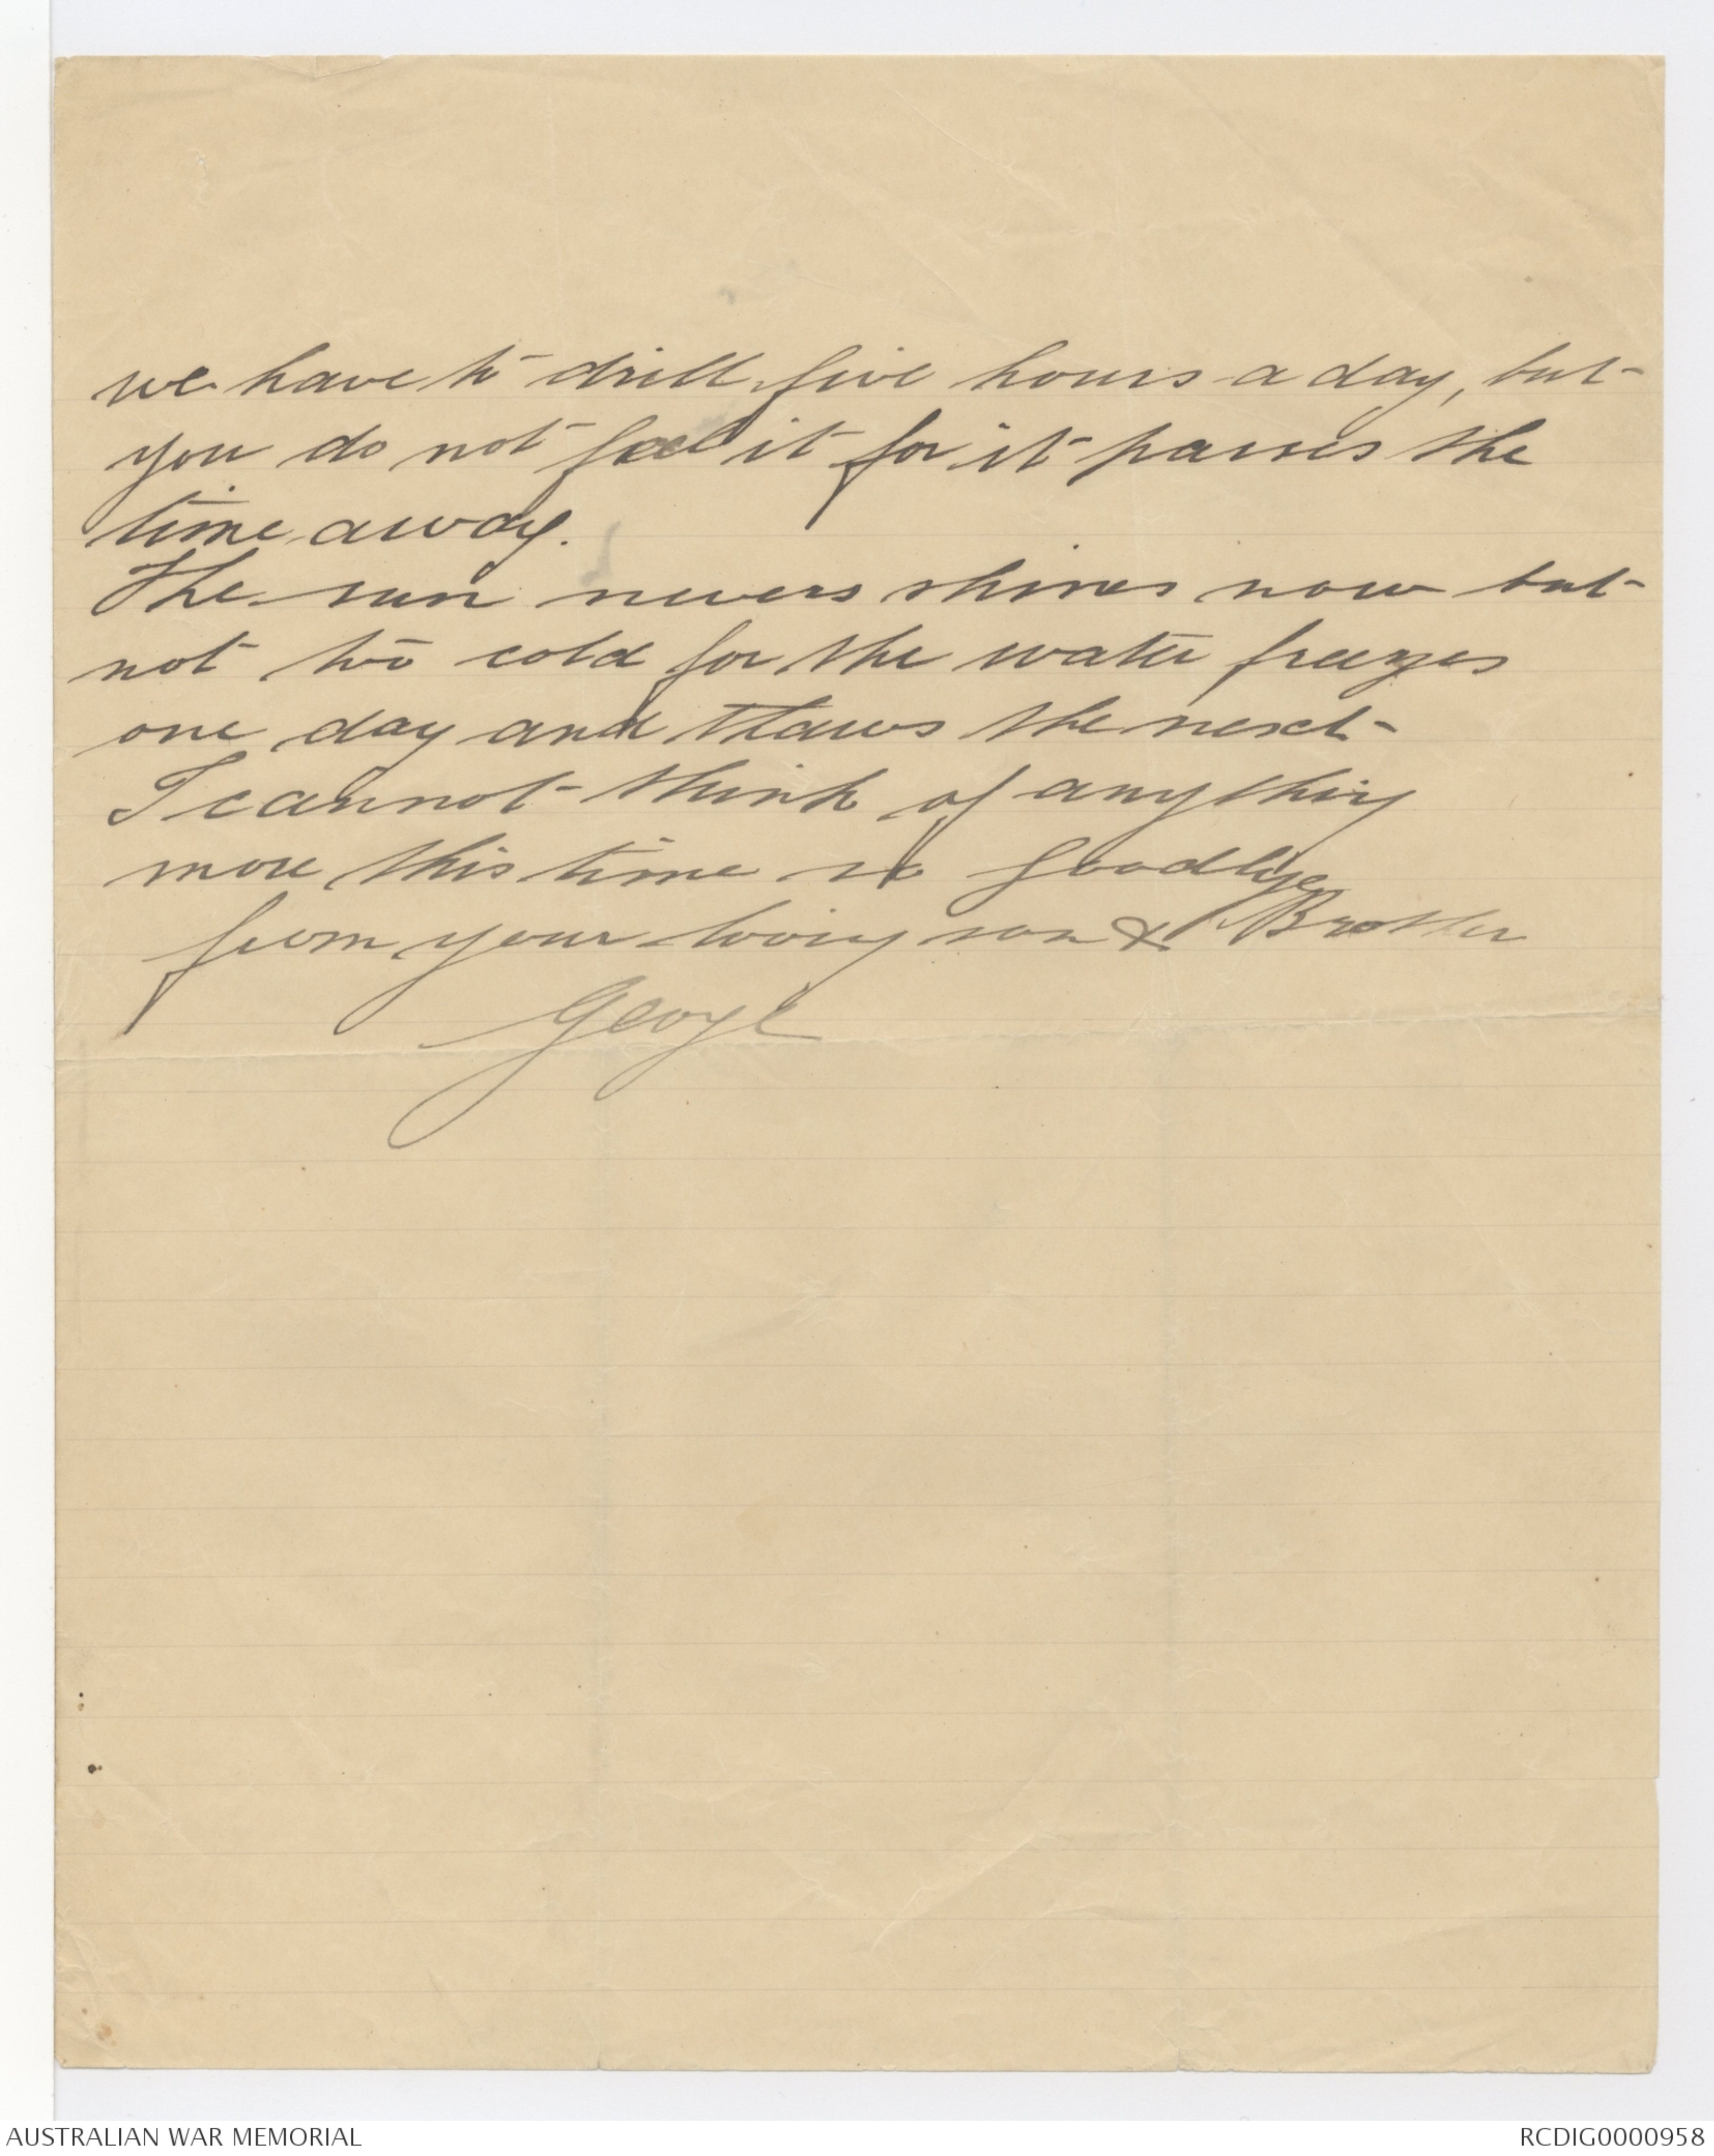 we have to drill five hours a day, but
you do not feel it for it passes the
time away.
The sun nevers shines now but
not to cold for the water freezes
one day and thaws the next
I cannot think of anything
more this time so goodbye
from your loving son & Brother
George
AUSTRALIAN WAR MEMORIAL
RCDIG0000958